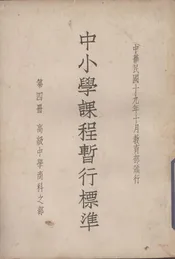 中華民國十九年十月教育部印行
中小學課程暫行標準
第四冊 高級中學商科之部